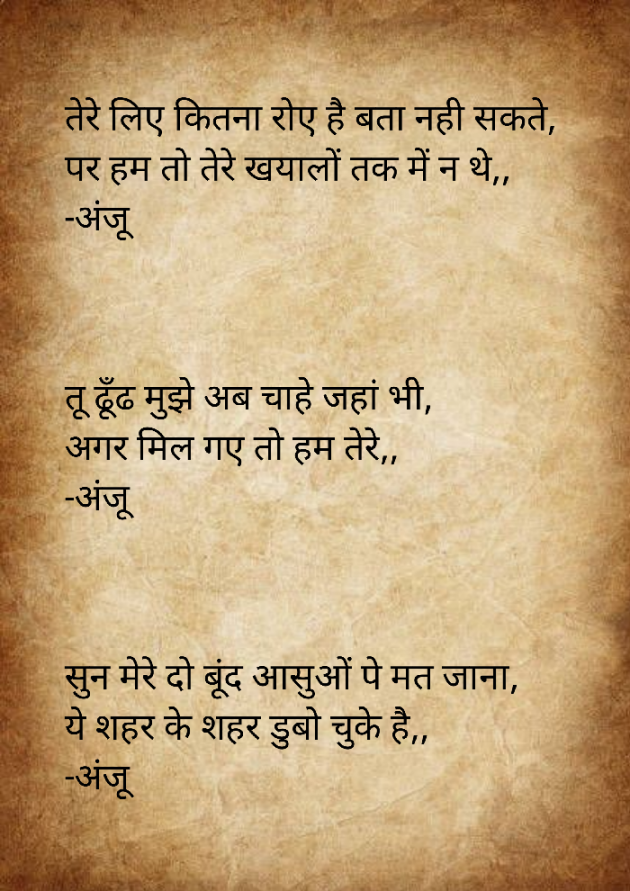 तेरे लिए कितना रोए है बता नही सकते,
पर हम तो तेरे खयालों तक में न थे,,
-अंजू
तू ढूँढ मुझे अब चाहे जहां भी,
अगर मिल गए तो हम तेरे,,
-अंजू
सुन मेरे दो बूंद आसुओं पे मत जाना,
ये शहर के शहर डुबो चुके है,,
-अंजू